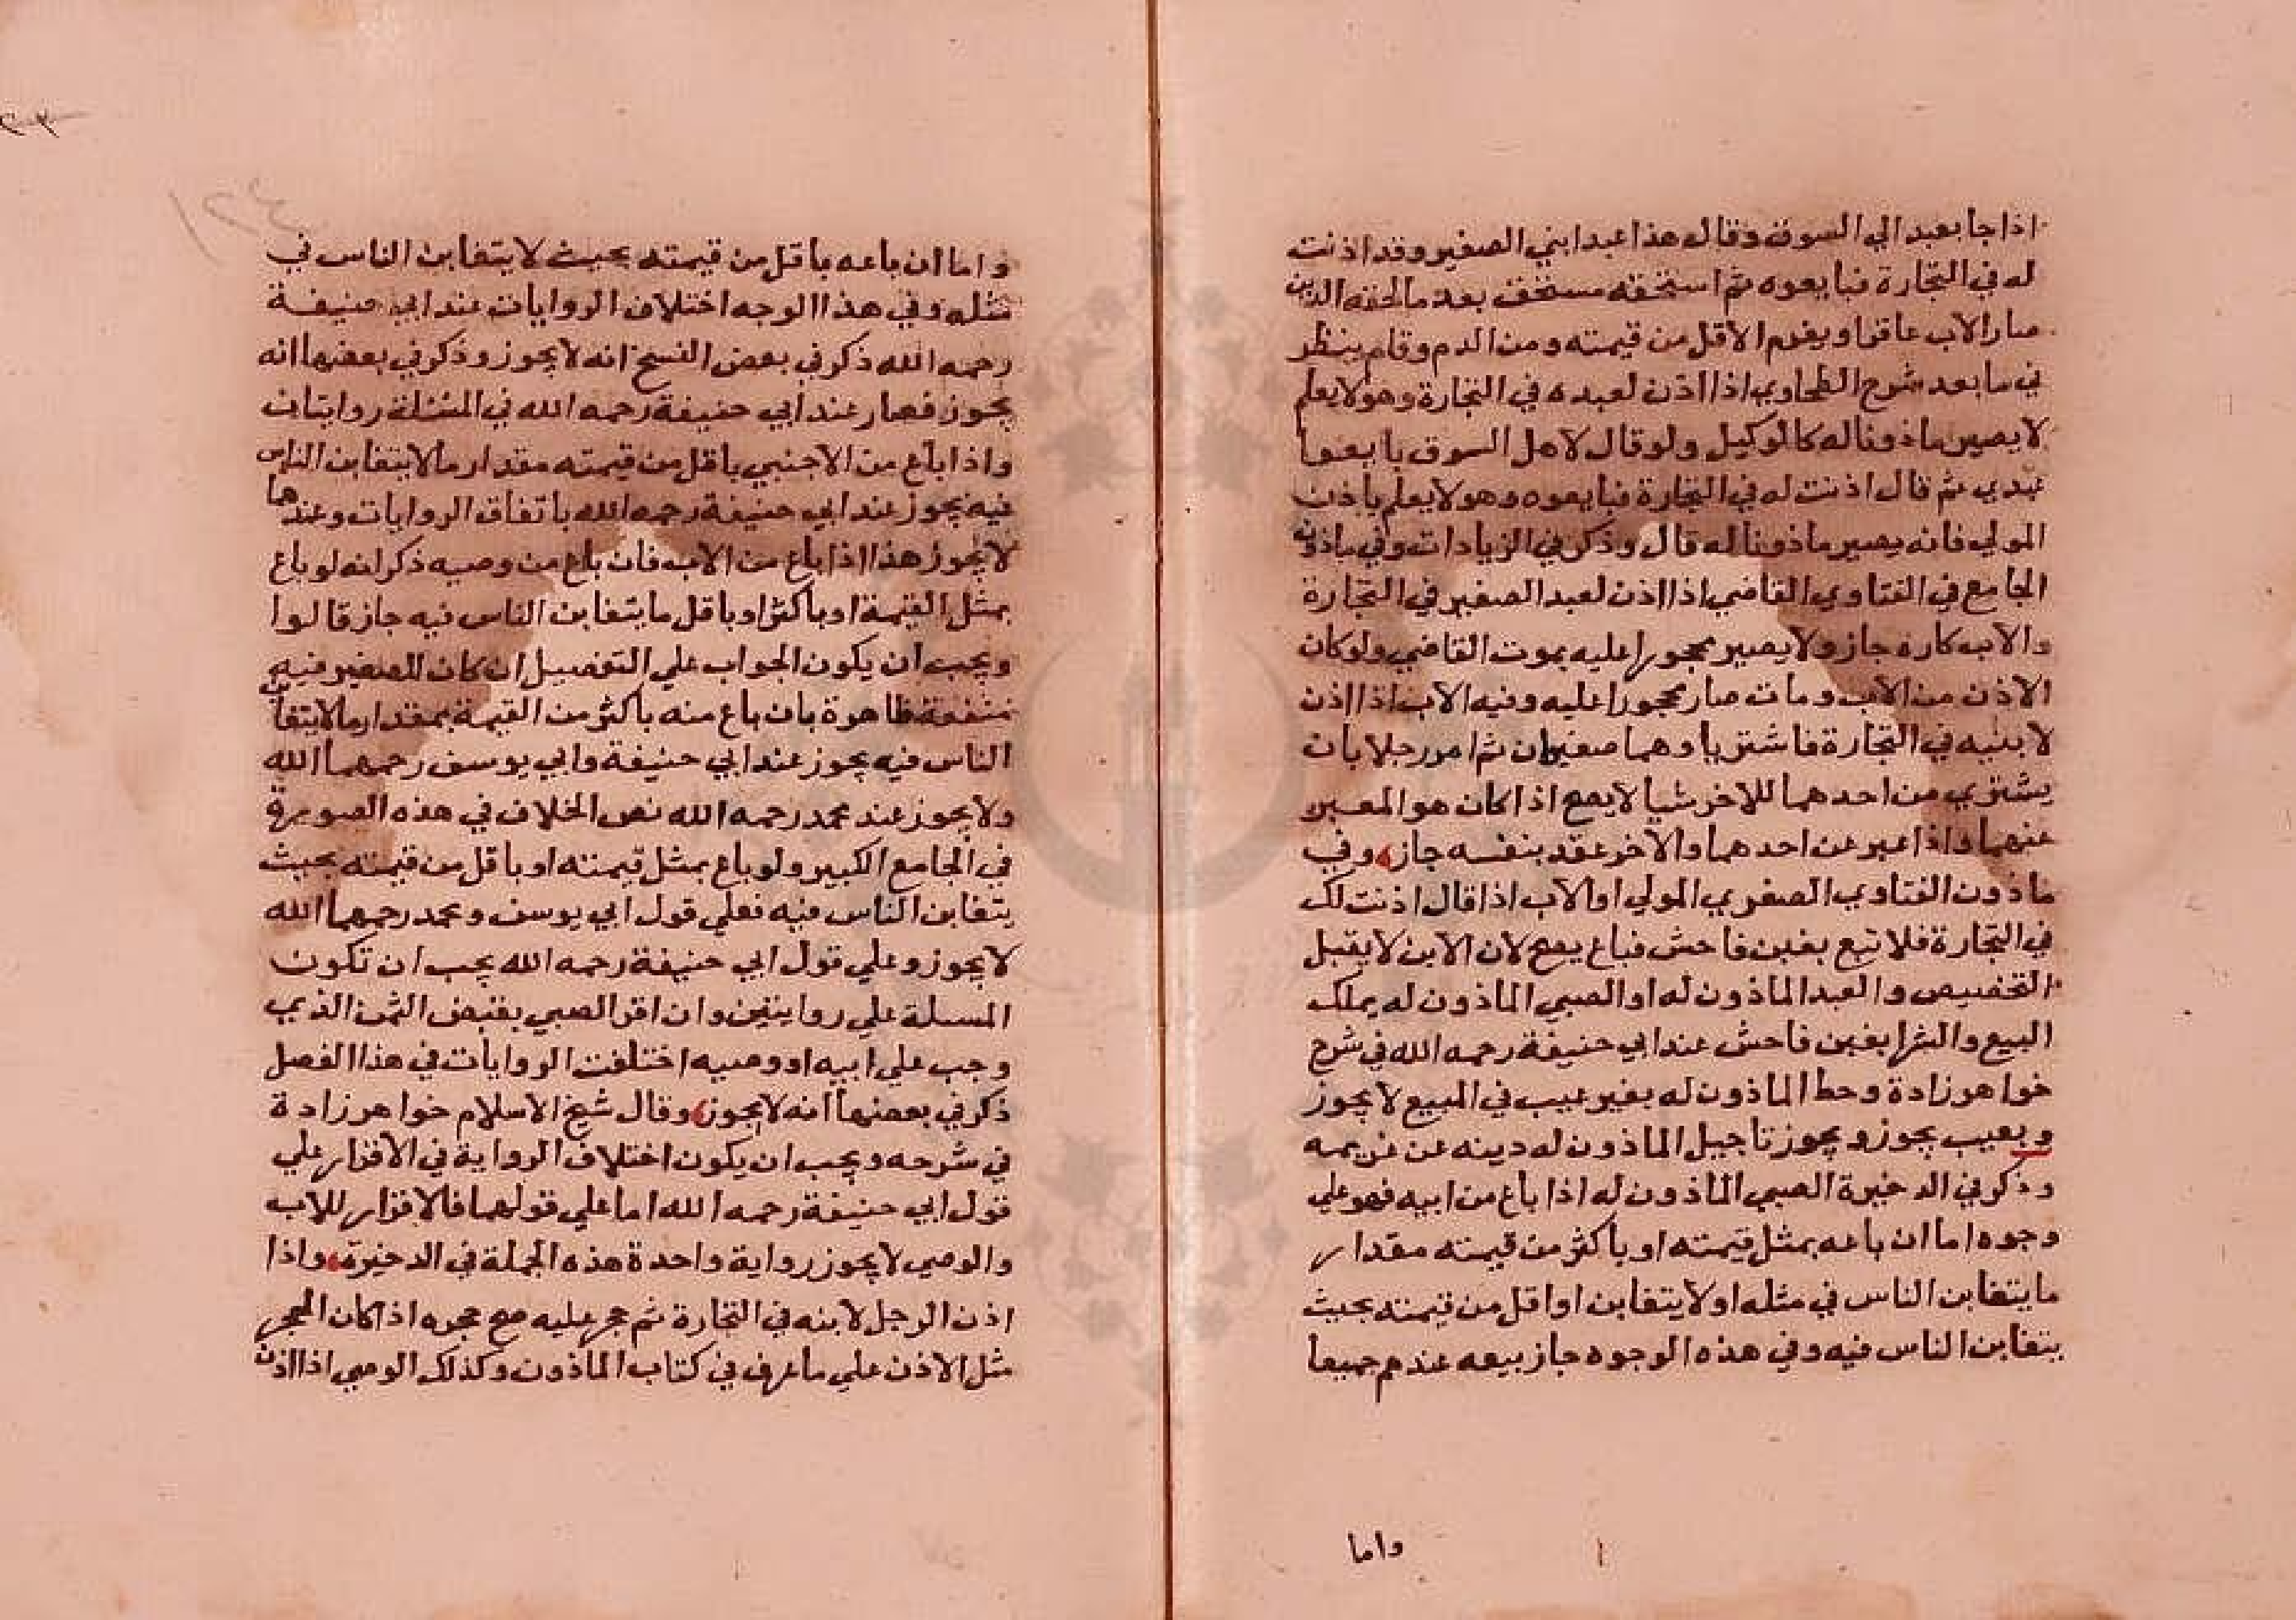 اذا جا بعبد الي السوق وقال هذا عبد ابني الصغير وقد اذنت
له في التجارة فبايعوه ثم استحقه مستحق بعد ما لحقه الدين
صار الاب غاراو يغرم الاقل من قيمته ومن الدم وقام ينظر
في ما بعد شرح الطحاوي اذا اذن لعبده في التجارة وهو لا يعلم
لا يصير ماذونا له كالوكيل ولو قال لاهل السوق بايعوا
عبدي ثم قال اذنت له في التجارة فبايعوه وهو لا يعلم باذن
المولي فانه يصير ماذونا له قال وذكر في الزيادات وفي ماذون
الجامع في الفتاوي القاضي اذا اذن لعبد الصغير في التجارة
والاب كاره جاز ولا يصير محجورا عليه بموت القاضي ولو كان
الاذن من الاب ومات صار محجورا عليه وفيه الاب اذا اذن
لابنيه في التجارة فاشتريا وهما صغيران ثم امر رجلا بان
يشتري من احدهما للاخر شيا لا يصح اذا كان هو المعبر
عنهما واذا عبر عن احدهما والاخر عقد بنفسه جاز وفي
ماذون الفتاوي الصغري المولي او الاب اذا قال اذنت لك
في التجارة فلا تبع بغبن فاحش فباع يصح لان الابن لا يقبل
التخصيص والعبد الماذون له او الصبي الماذون له يملك
البيع والشرا بغبن فاحش عند ابي حنيفة رحمه الله في شرح
خواهرزادة وحط الماذون له بغير عيب في المبيع لا يجوز
وبعيب يجوز ويجوز تاجيل الماذون له دينه عن غريمه
وذكر في الدخيرة الصبي الماذون له اذا باع من ابيه فهو علي
وجوه اما ان باعه بمثل قيمته او باكثر من قيمته مقدار
ما يتغابن الناس في مثله او لا يتغابن او اقل من قيمته بحيث
يتغابن الناس فيه وفي هذه الوجوه جاز بيعه عندهم جميعا
واما
واما ان باعه باقل من قيمته بحيث لا يتغابن الناس في
مثله وفي هذا الوجه اختلاف الروايات عند ابي حنيفة
رحمه الله ذكر في بعض النسخ انه لا يجوز وذكر في بعضها انه
يجوز فصار عند ابي حنيفة رحمه الله في المسئلة روايتان
واذا باع من الاجنبي باقل من قيمته مقدار ما لا يتغابن الناس
فيه يجوز عند ابي حنيفة رحمه الله باتفاق الروايات وعندهما
لا يجوز هذا اذا باع من الاب فان باع من وصيه ذكر انه لو باع
بمثل القيمة او باكثر او باقل ما يتغابن الناس فيه جاز قالوا
ويجب ان يكون الجواب علي التفصيل ان كان للصغير فيه
منفعة ظاهرة بان باع منه باكثر من القيمة بمقدار ما لا يتغابن
الناس فيه يجوز عند ابي حنيفة وابي يوسف رحمهما الله
ولا يجوز عند محمد رحمه الله نص الخلاف في هذه الصورة
في الجامع الكبير ولو باع بمثل قيمته او باقل من قيمته بحيث
يتغابن الناس فيه فعلي قول ابي يوسف ومحمد رحمهما الله
لا يجوز وعلي قول ابي حنيفة رحمه الله يجب ان تكون
المسلة علي روايتين وان اقر الصبي بقبض الثمن الذي
وجب علي ابيه او وصيه اختلفت الروايات في هذا الفصل
ذكر في بعضها انه لا يجوز وقال شيخ الاسلام خواهرزادة
في شرحه ويجب ان يكون اختلاف الرواية في الاقرار علي
قول ابي حنيفة رحمه الله اما علي قولهما فالاقرار للاب
والوصي لا يجوز رواية واحدة هذه الجملة في الدخيرة واذا
اذن الرجل لابنه في التجارة ثم حجر عليه صح حجره اذا كان الحجر
مثل الاذن علي ما عرف في كتاب الماذون وكذلك الوصي اذا اذن